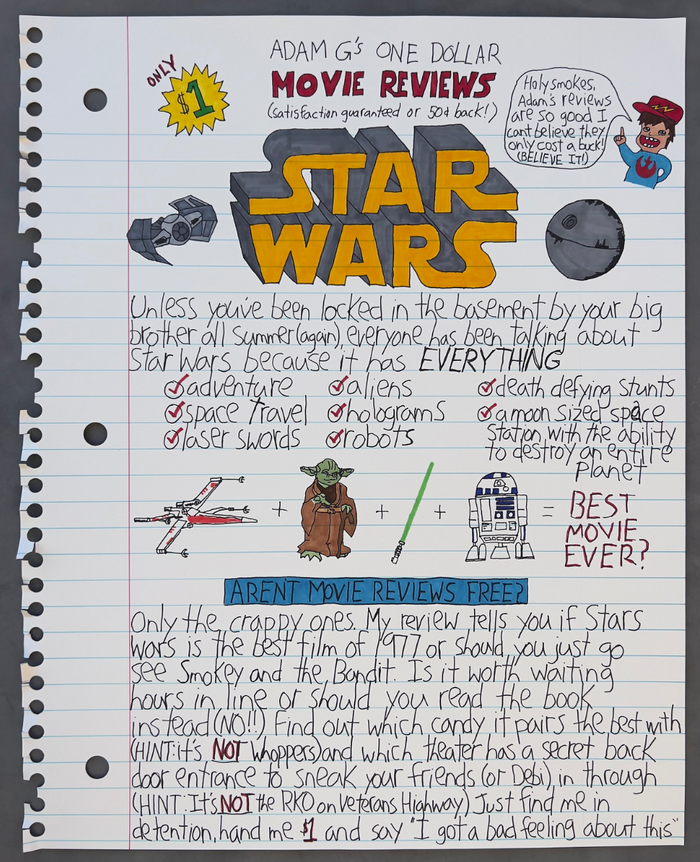 ADAM G's ONE DOLLAR
ONLY
$1
MOVIE REVIEWS
(satisfaction guaranteed or 50¢ back!)
Holy smokes,
Adam's reviews
are so good I
can't believe they
only cost a buck!
(BELIEVE IT!)
STAR
WARS
Unless you've been locked in the basement by your big
brother all summer (again), everyone has been talking about
Star Wars because it has EVERYTHING
adventure
space travel
laser swords
aliens
holograms
robots
death defying stunts
a moon sized space
station with the ability
to destroy an entire
planet
+ + + =
BEST
MOVIE
EVER?
ARENT MOVIE REVIEWS FREE?
Only the crappy ones. My review tells you if Stars
wars is the best film of 1977 or should you just go
see Smokey and the Bandit. Is it worth waiting
hours in line or should you read the book
instead (NO!!) Find out which candy it pairs the best with
(HINT: it's NOT Whoppers) and which theater has a secret back
door entrance to sneak your friends (or Debi) in through
(HINT: It's NOT the RKO on Veterans Highway) Just find me in
detention, hand me $1 and say "I got a bad feeling about this"